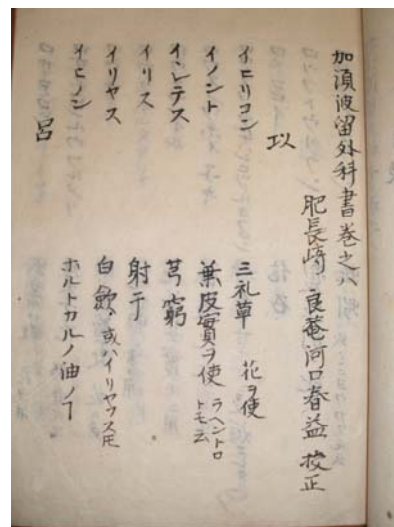 加須波留外科書巻之八
肥長崎 良菴河口春益 挍正
以
イヒリコン 三礼草 花ヲ使
イノント 葉皮實ヲ使 ラヘントロトモ云
インレテス 芎窮
イリス 射干
イリヤス 白 或ハイリヤウス𪜈
イヒノシ ホルトカルノ油ノヿ
呂